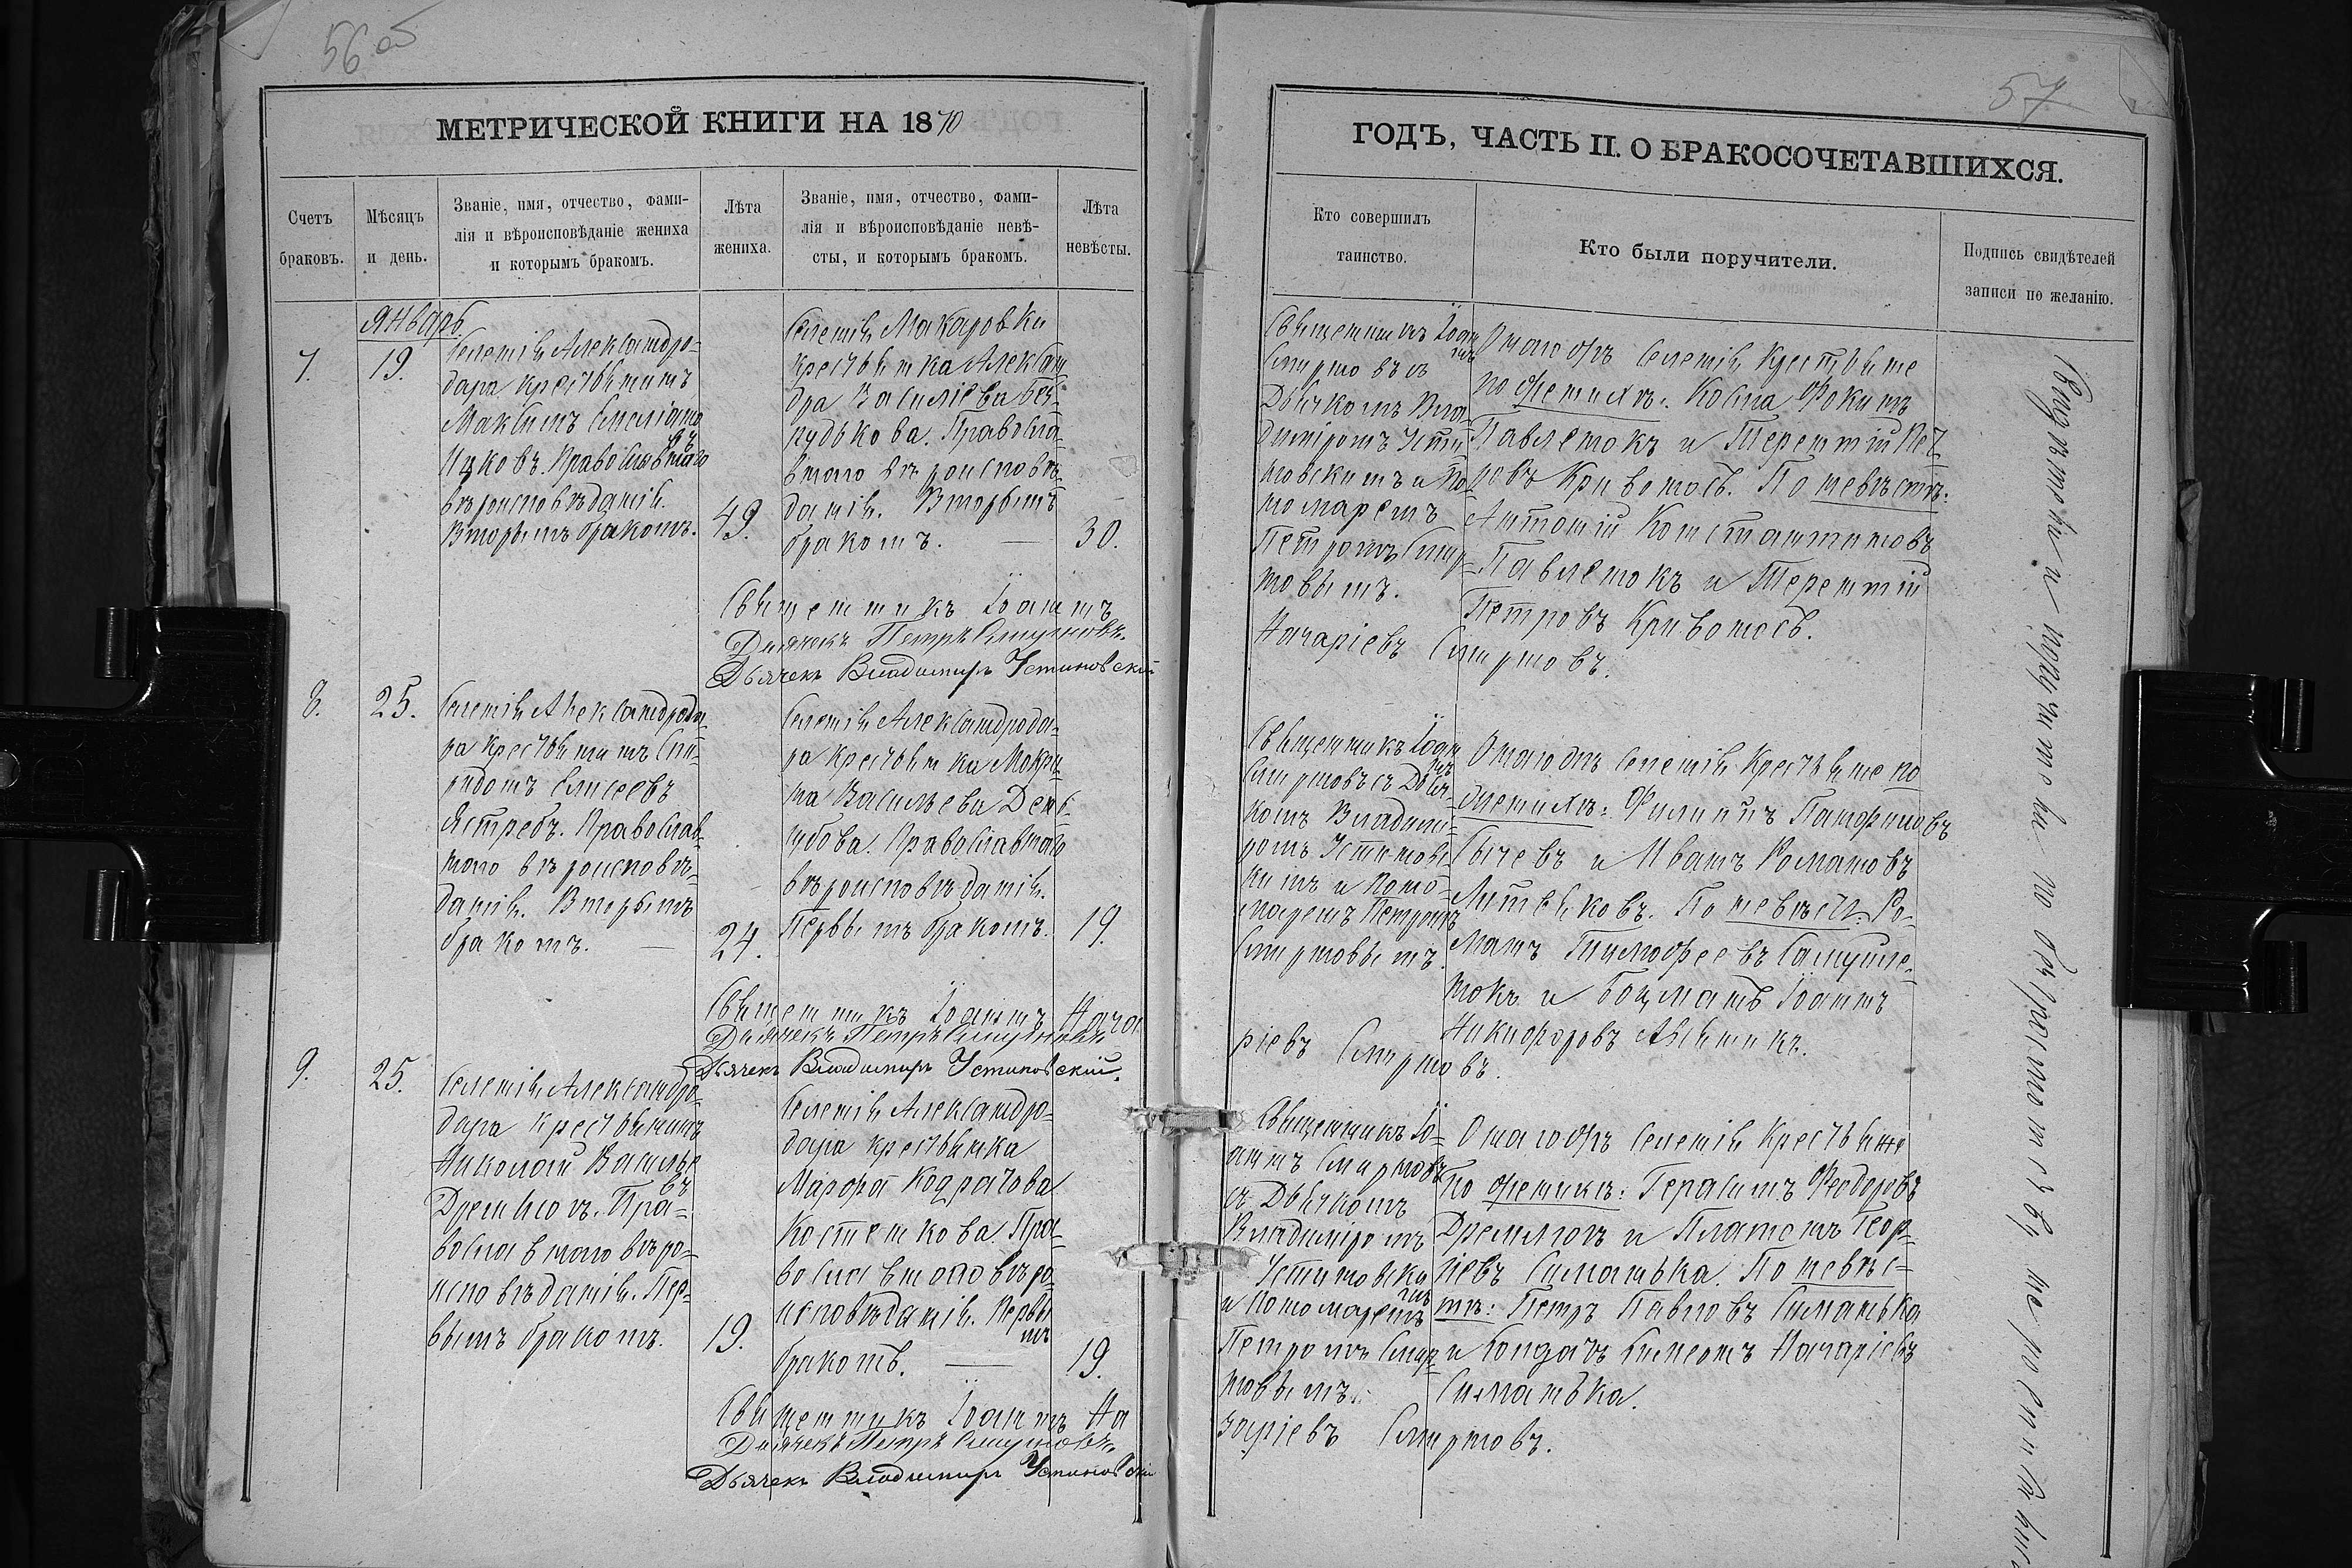 56 об
МЕТРИЧЕСКОЙ КНИГИ НА 1870
Счетъ браковъ.
Мѣсяцъ и день.
Званіе, имя, отчество, фами-
лія и вѣроисповѣданіе жениха
и которымъ бракомъ.
Лѣта
жениха.
Званіе, имя, отчество, фами-
лія и вѣроисповѣданіе невѣ-
сты, и которымъ бракомъ.
Лѣта
невѣсты.
Январь.
7.
19.
Селенія Александро-
дара крестьянинъ
Максимъ
Православнаго
вѣроисповѣданія.
Вторымъ бракомъ.
49.
Селенія Макаровки
крестьянка Алексан
дра Василіева Без-
рудькова. Правосла-
внаго вѣроисповѣ-
данія. Вторымъ
бракомъ. —
30.
Священникъ Іоаннъ
Дьячекъ Петръ Смирновъ.
Дьячекъ Владимиръ Устиновскій
8.
25.
Селенія Александрода-
ра крестьянинъ Спи-
ридонъ Елисеевъ
Ястребъ. Православ-
наго вѣроисповѣ-
данія. Вторымъ
бракомъ. —
24.
Селенія Александрода-
ра крестьянка Макри-
на Васильева
Православнаго
вѣроисповѣданія.
Первымъ бракомъ.
19.
Священникъ Іоаннъ Наза
Дьячекъ Петръ Смирновъ
Дьячекъ Владимиръ Устиновскій.
9.
25.
Селенія Александро-
дара крестьянинъ
Николай Василье
въ
Дремлюгъ. Пра-
вославнаго вѣро-
исповѣданія. Пер-
вымъ бракомъ.
19.
Селенія Александро-
дара крестьянка
Марфа Кодратова
Костенкова. Пра-
вославнаго вѣро-
исповѣданія. Первы
мъ
бракомъ. —
19.
Священникъ Іоаннъ На
Дьячекъ Петръ Смирновъ.
Дьячекъ Владимиръ Устиновскій
57
ГОДЪ, ЧАСТЬ II. О БРАКОСОЧЕТАВШИХСЯ.
Кто совершилъ
таинство.
Кто были поручители.
Подпись свидѣтелей
записи по желанію.
Священникъ Іоан
нъ
Смирновъ съ
Дьячкомъ Вла-
диміромъ Усти-
новскимъ и По-
номаремъ
Петромъ Смир-
новымъ.
Назаріевъ Смирновъ.
Оногожъ селенія крестьяне
по женихѣ: Косма Фокинъ
Павленокъ и Терентій Пет-
ровъ Кривоносъ. По невѣстѣ:
Антоній Константиновъ
Павленокъ и Терентій
Петровъ Кривоносъ.
Священникъ Іоан
нъ
Смирновъ съ Дьяч-
комъ Владими-
ромъ Устиновс-
кимъ и Поно-
маремъ Петромъ
Смирновымъ.
ріевъ Смирновъ.
Оногожъ селенія крестьяне по
женихѣ: Филиппъ Панфиловъ
Сычевъ и Иванъ Романовъ
Литвяковъ. По невѣст. Ро-
манъ Тимофеевъ Самуйле-
нокъ и Боцманъ Іоаннъ
Никифоровъ
Священникъ Іо-
аннъ Смирновъ
съ Дьячкомъ
Владиміромъ
Устиновски
мъ
и Пономаремъ
Петромъ Смир-
новымъ.
заріевъ Смирновъ.
Оногожъ селенія крестьяне
по женихѣ: Герасимъ Феодоровъ
Дремлюгъ и Платонъ Геор-
гіевъ Симанька. По невѣс-
тѣ: Петръ Павловъ Симанька
и Солдатъ Симеонъ Назаріевъ
Симанька.
Свидѣтели и поручители по безграмотству не росписались